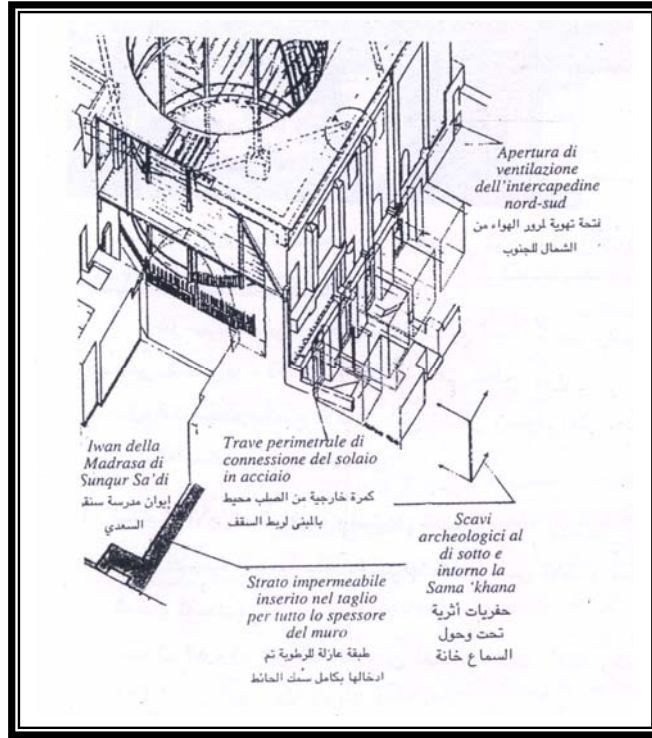 Apertura di
ventilazione
dell'intercapedine
nord-sud
فتحة تهوية لمرور الهواء من
الشمال للجنوب
Iwan della
Madrasa di
Sunqur Sa'di
إيوان مدرسة سنقر
السعدي
Trave perimetrale di
connessione del solaio
in acciaio
كمرة خارجية من الصلب محيط
بالمبنى لربط السقف
Scavi
archeologici al
di sotto e
intorno la
Sama 'khana
حفريات أثرية
تحت وحول
السماع خانة
Strato impermeabile
inserito nel taglio
per tutto lo spessore
del muro
طبقة عازلة للرطوبة تم
ادخالها بكامل سُمك الحائط